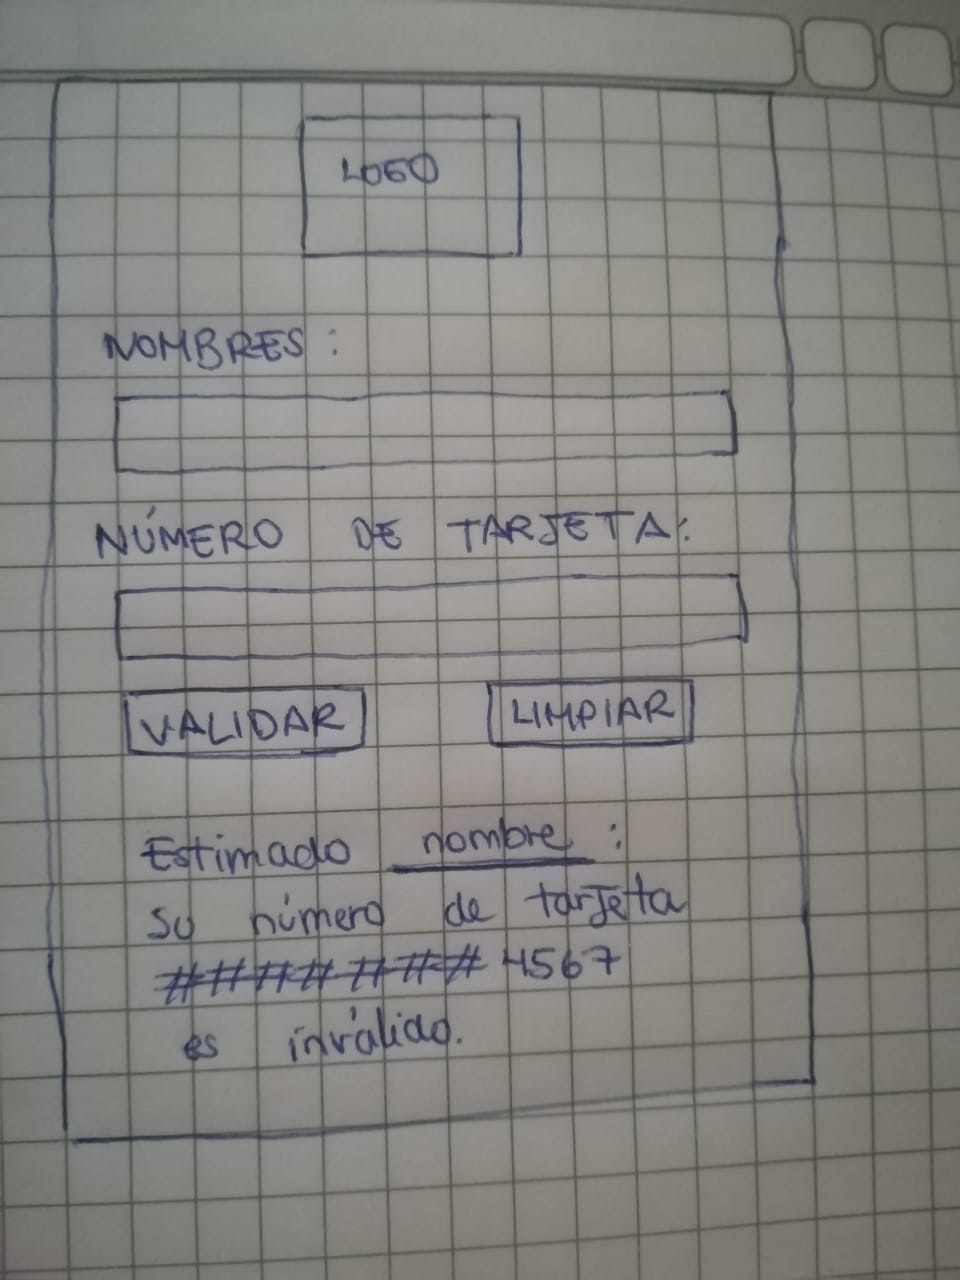 LOGO
NOMBRES:
NÚMERO DE TARJETA:
VALIDAR LIMPIAR
Estimado nombre :
Su número de tarjeta
#######4567
es inválido.